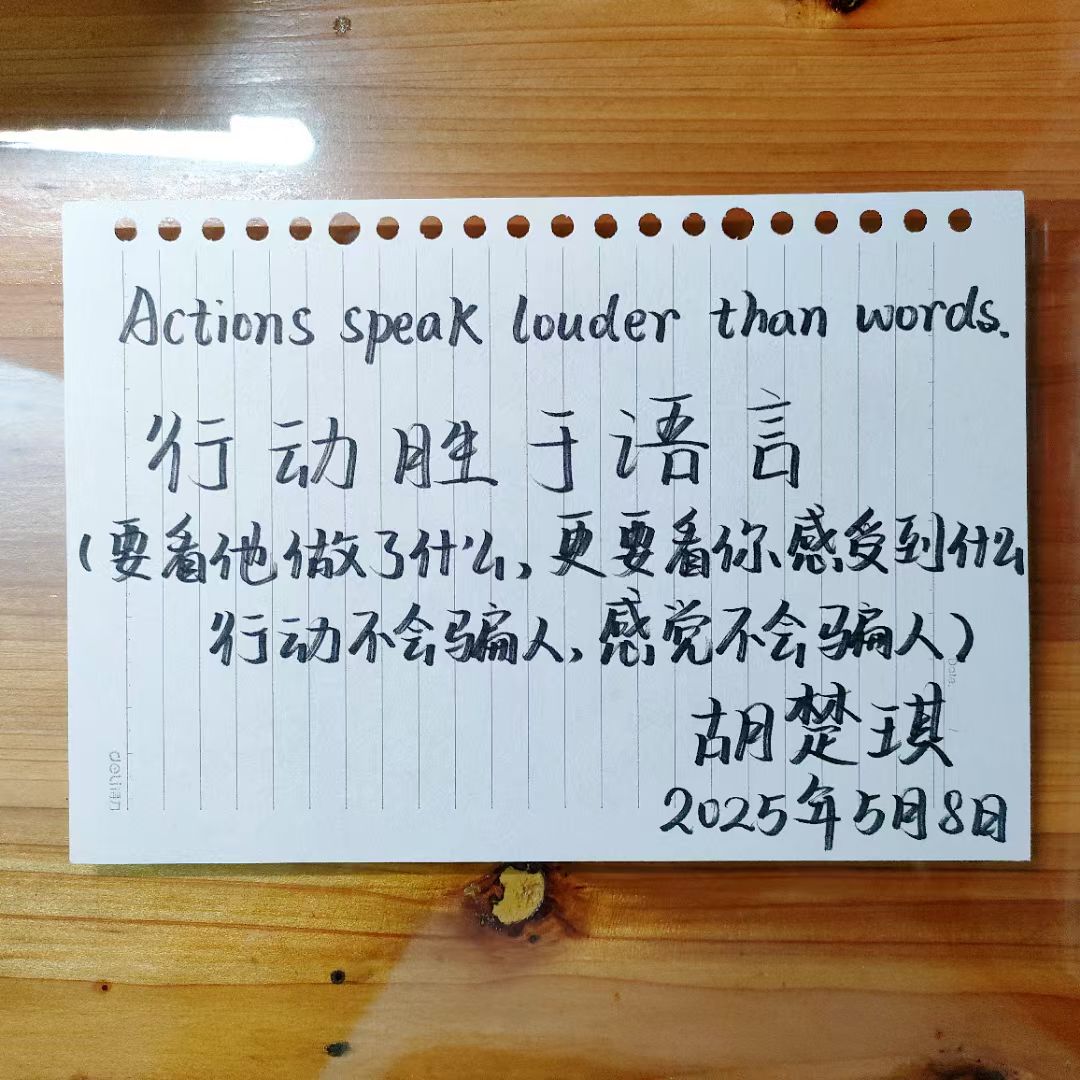 Actions speak louder than words.
行动胜于语言
(要看他做了什么,更要看你感受到什么
行动不会骗人,感觉不会骗人)
Date.
胡楚琪
2025年5月8日
delian